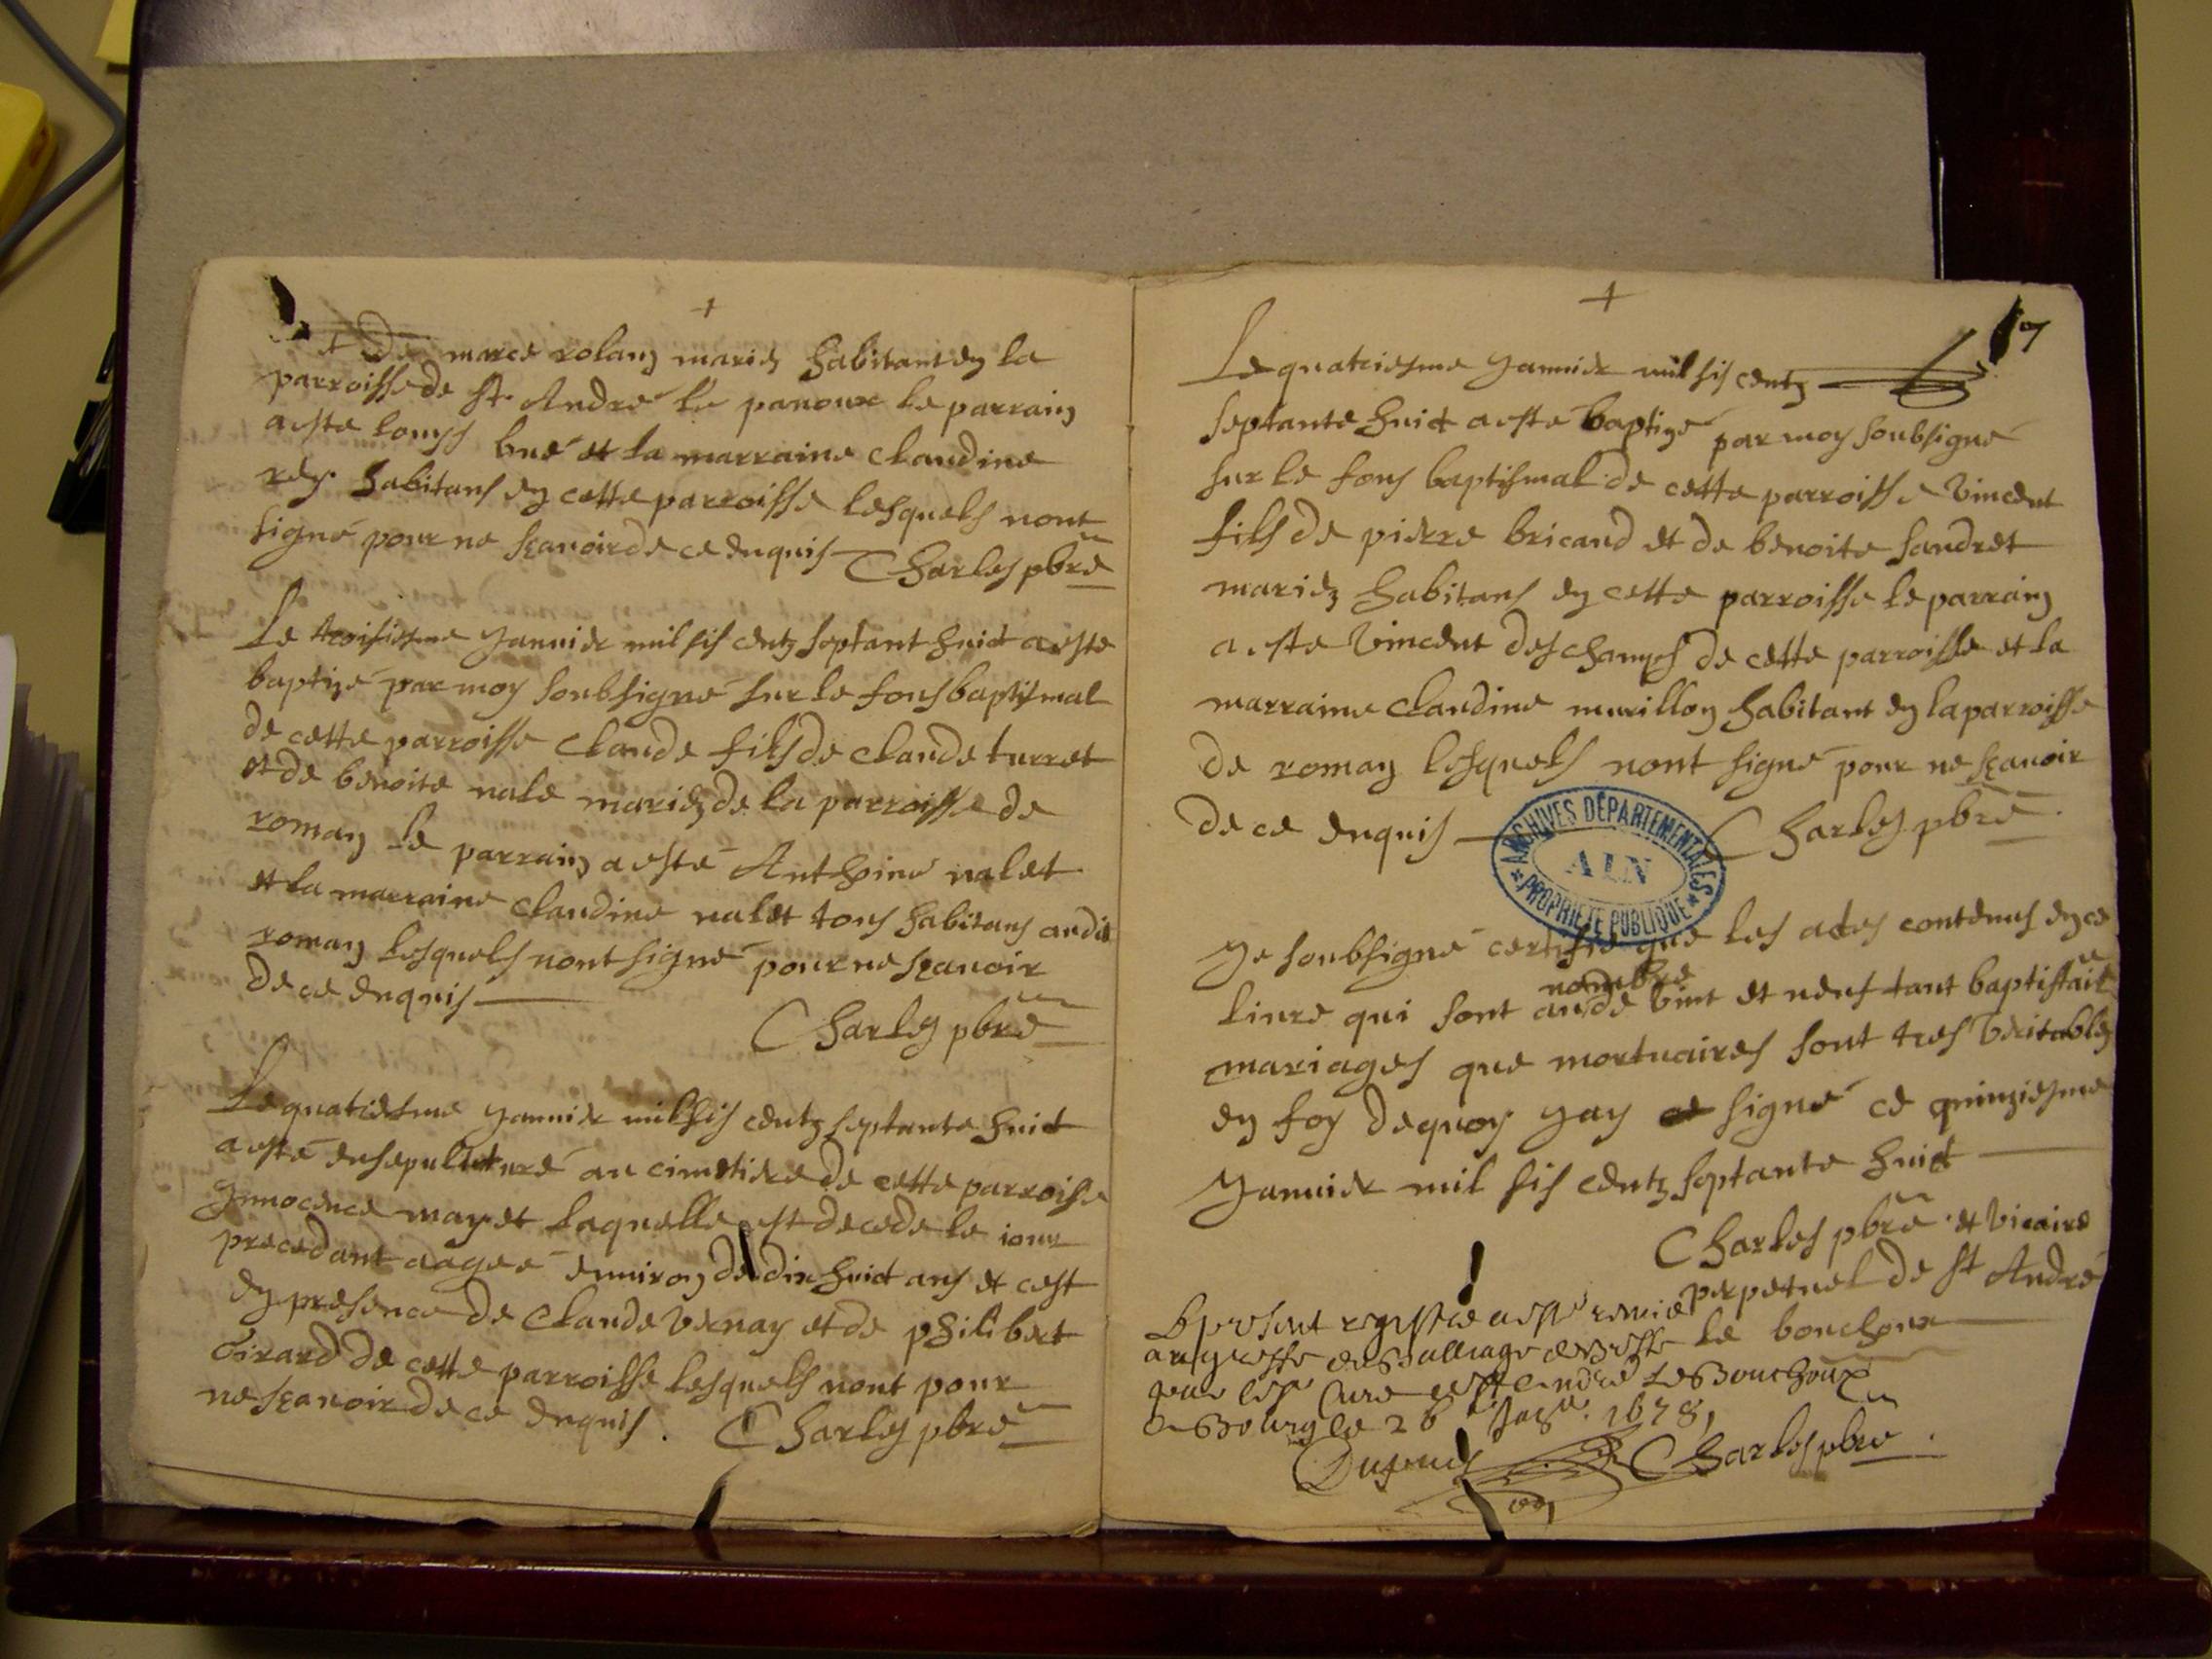 +
et de marce rolang mariez habitant en la
parroisse de St. André le panoux le parrain
a esté Louys bué et la marraine Claudine
rey habitans en cette parroisse lesquels nont
signé pour ne scavoir de ce enquis Charles pbre
Le troisiesme janvier mil six centz septant huict a esté
baptizé par moy soubsigné sur le fons baptismal
de cette parroisse Claude fils de Claude turret
et de benoite nale mariez de la parroisse de
roman le parrain a esté Anthoine nalet
et la marraine Claudine nalet tous habitans audit
roman lesquels nont signé pour ne scavoir
de ce enquis
Charles pbre
Le quatriesme janvier mil six centz septante huict
a esté ensepulturé au cimetiere de cette parroisse
Jnnocence mayet laquelle est decede le iour
precedant aagée environ de dix huict ans et cest
en presence de Claude vernay et de philibert
Girard de cette parroisse lesquels nont pour
ne scavoir de ce enquis. Charles pbre
+
7
Le quatriesme janvier mil six centz
septante huict a esté baptizé par moy soubsigné
sur le fons baptismal de cette parroisse Vincent
fils de pierre bricaud et de benoite sandret
mariez habitans en cette parroisse le parrain
a esté Vincent deschamps de cette parroisse et la
marraine Claudine murillon habitant en la parroisse
de roman lesquels nont signé pour ne scavoir
de ce enquis Charles pbre.
ARCHIVES DÉPARTEMENTALES
AIN
PROPRIÉTÉ PUBLIQUE
Je soubsigné certifie que les actes contenus en ce
nombre
livre qui sont au de vint et neuf tant baptistail
mariages que mortuaires sont tres veritables
en foy dequoy jay signé ce quinziesme
janvier mil six centz septante huict
Charles pbre et vicaire
perpetuel de St André
le bouchoux
Le present registre a esté remis
au greffe du Balliage de Bresse
par led. Sr Curé de St André Le Bouchoux
A Bourg le 26 1678,
Dupuis Charles pbre.